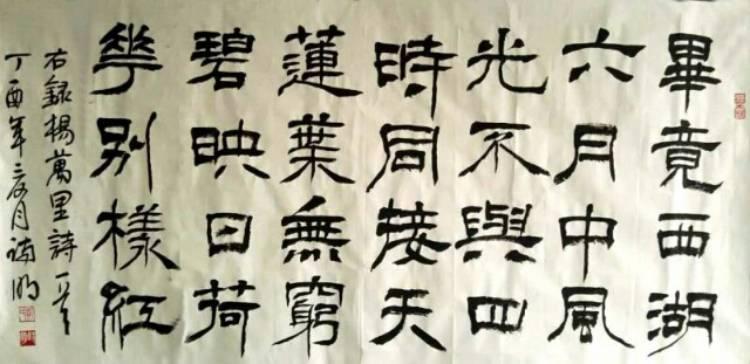 畢竟西湖
六月中風
光不與四
時同接天
蓮葉無窮
碧映日荷
華別樣紅
右錄楊萬里詩一首
丁酉年月